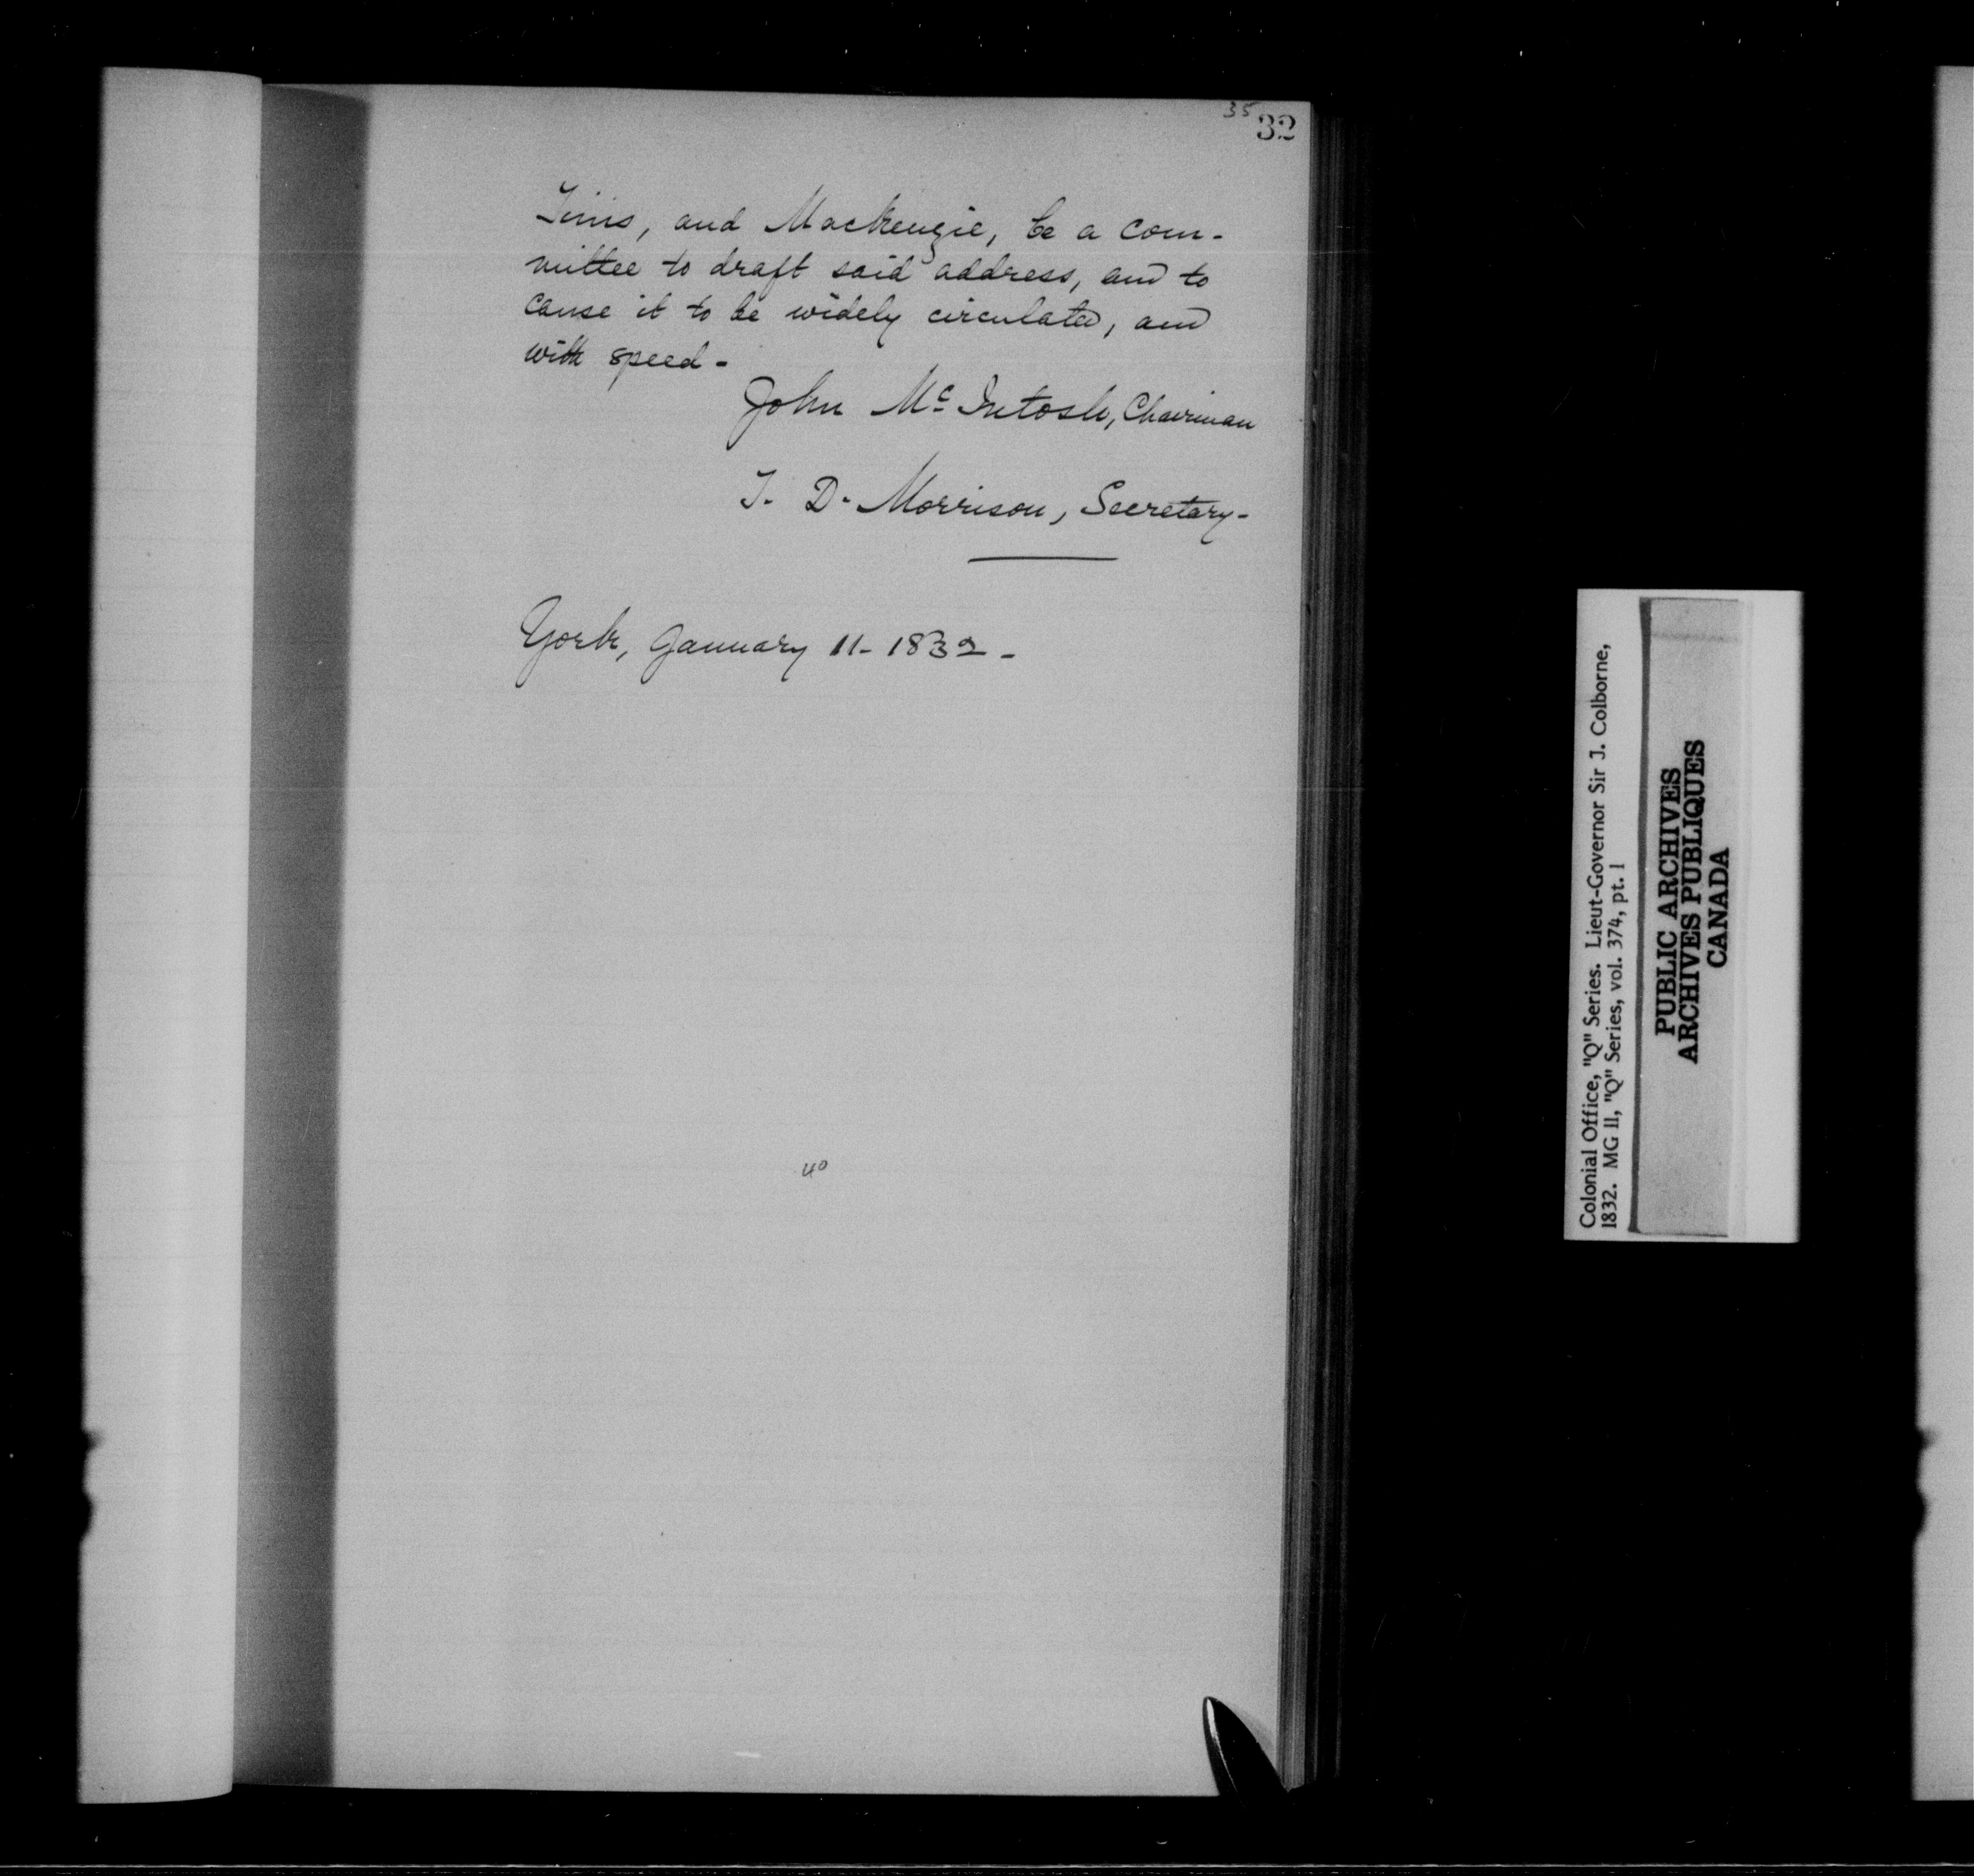 35
32
Tims, and Mackenzie, be a com-
mittee to draft said address, and to
cause it to be widely circulated, and
with speed-
John Mc Intosh, Chairman
T. D. Morrison, Secretary-
York, January 11- 1832-
40
Colonial Office, "Q" Series. Lieut-Governor Sir J. Colborne,
1832. MG 11, "Q" Series, vol. 374, pt. 1
PUBLIC ARCHIVES
ARCHIVES PUBLIQUES
CANADA